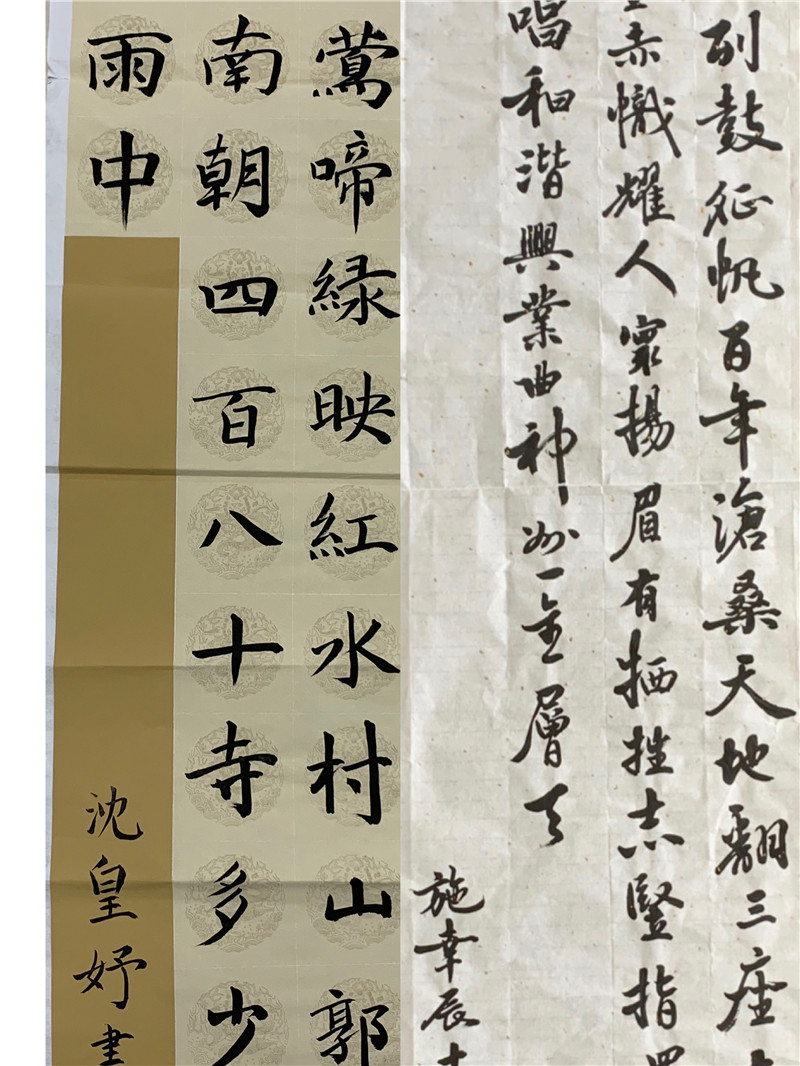 列鼓征帆百年滄桑天地翻三座
赤幟耀人寰揚眉有牺牲志竪指
唱和諧興業曲神州一層天
施幸辰
鶯啼緑映紅水村山郭
南朝四百八十寺多少
雨中
沈皇妤書